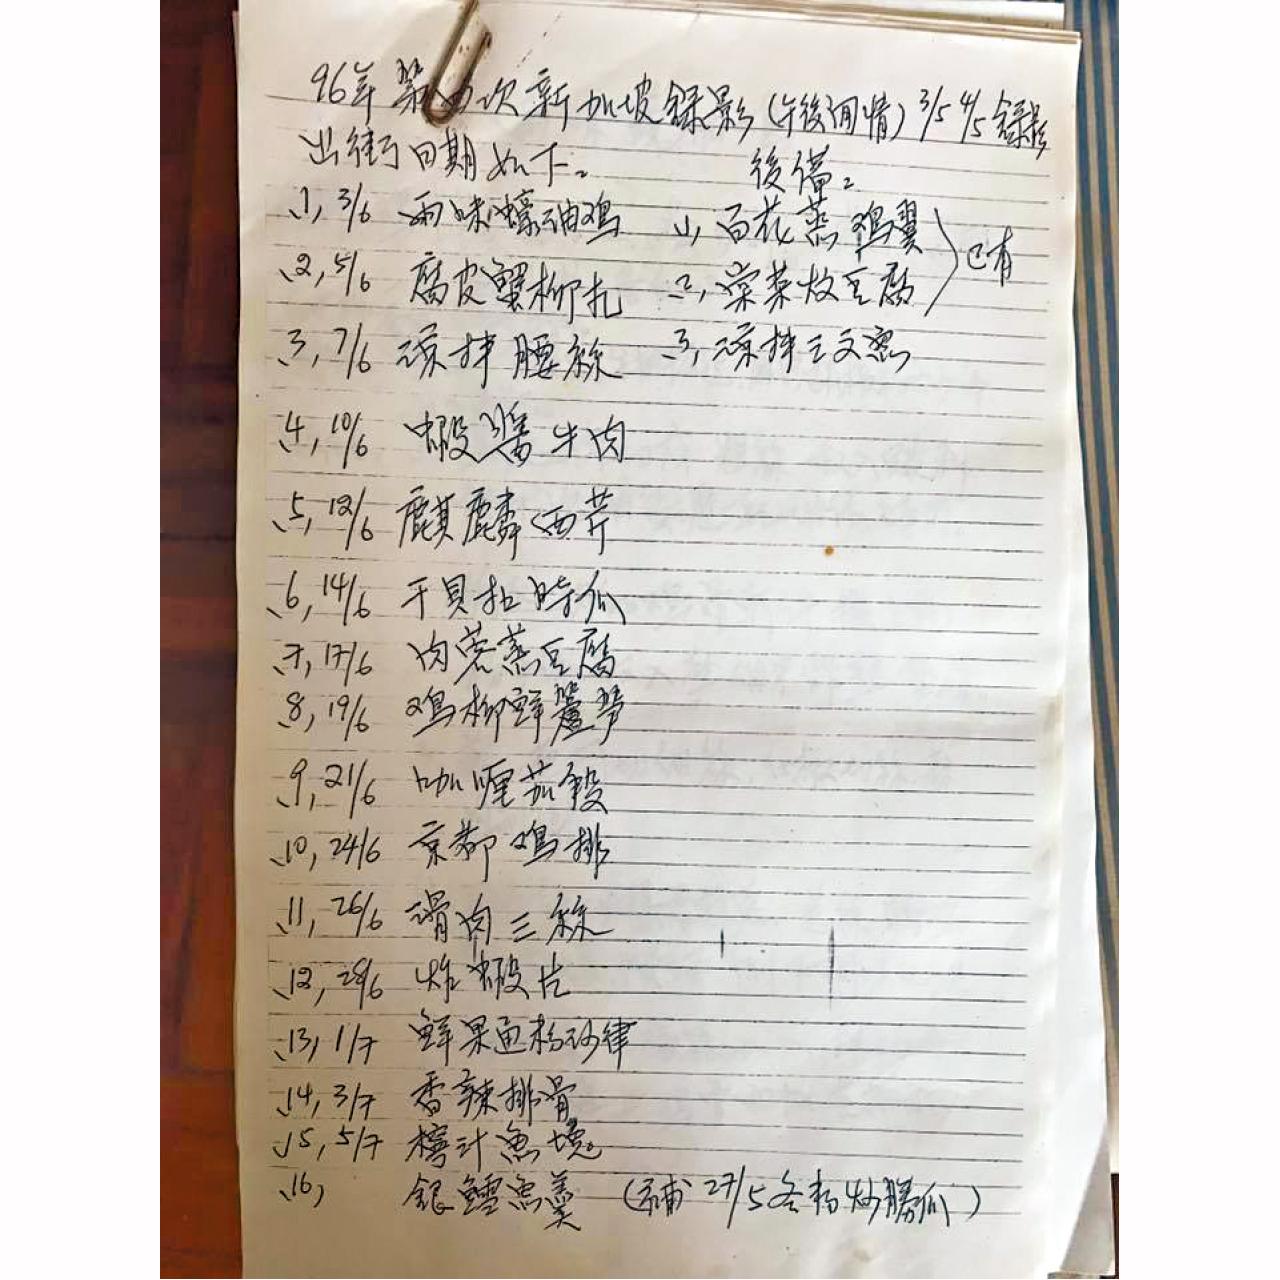 96年第四次新加坡錄影(午後閒情) 3/5 4/5錄影
出街日期如下。
後備。
1, 3/6 兩味蠔油鸡
1, 百花蒸鸡翼
2, 5/6 腐皮蟹柳扎
2, 榮菜炆豆腐
已有
3, 7/6 凉拌腰絲
3, 凉拌三文魚
4, 10/6 虾醬牛肉
5, 12/6 麒麟西芹
6, 14/6 干貝扣時瓜
7, 17/6 肉蓉蒸豆腐
8, 19/6 鸡柳鮮蘆笋
9, 21/6 咖喱茄
10, 24/6 京都鸡排
11, 26/6 滑肉三絲
12, 28/6 炸蝦片
13, 1/7 鮮果魚粉沙律
14, 3/7 香辣排骨
15, 5/7 檸汁魚塊
16, 銀鱈魚羹 (補27/5冬粉炒勝瓜)